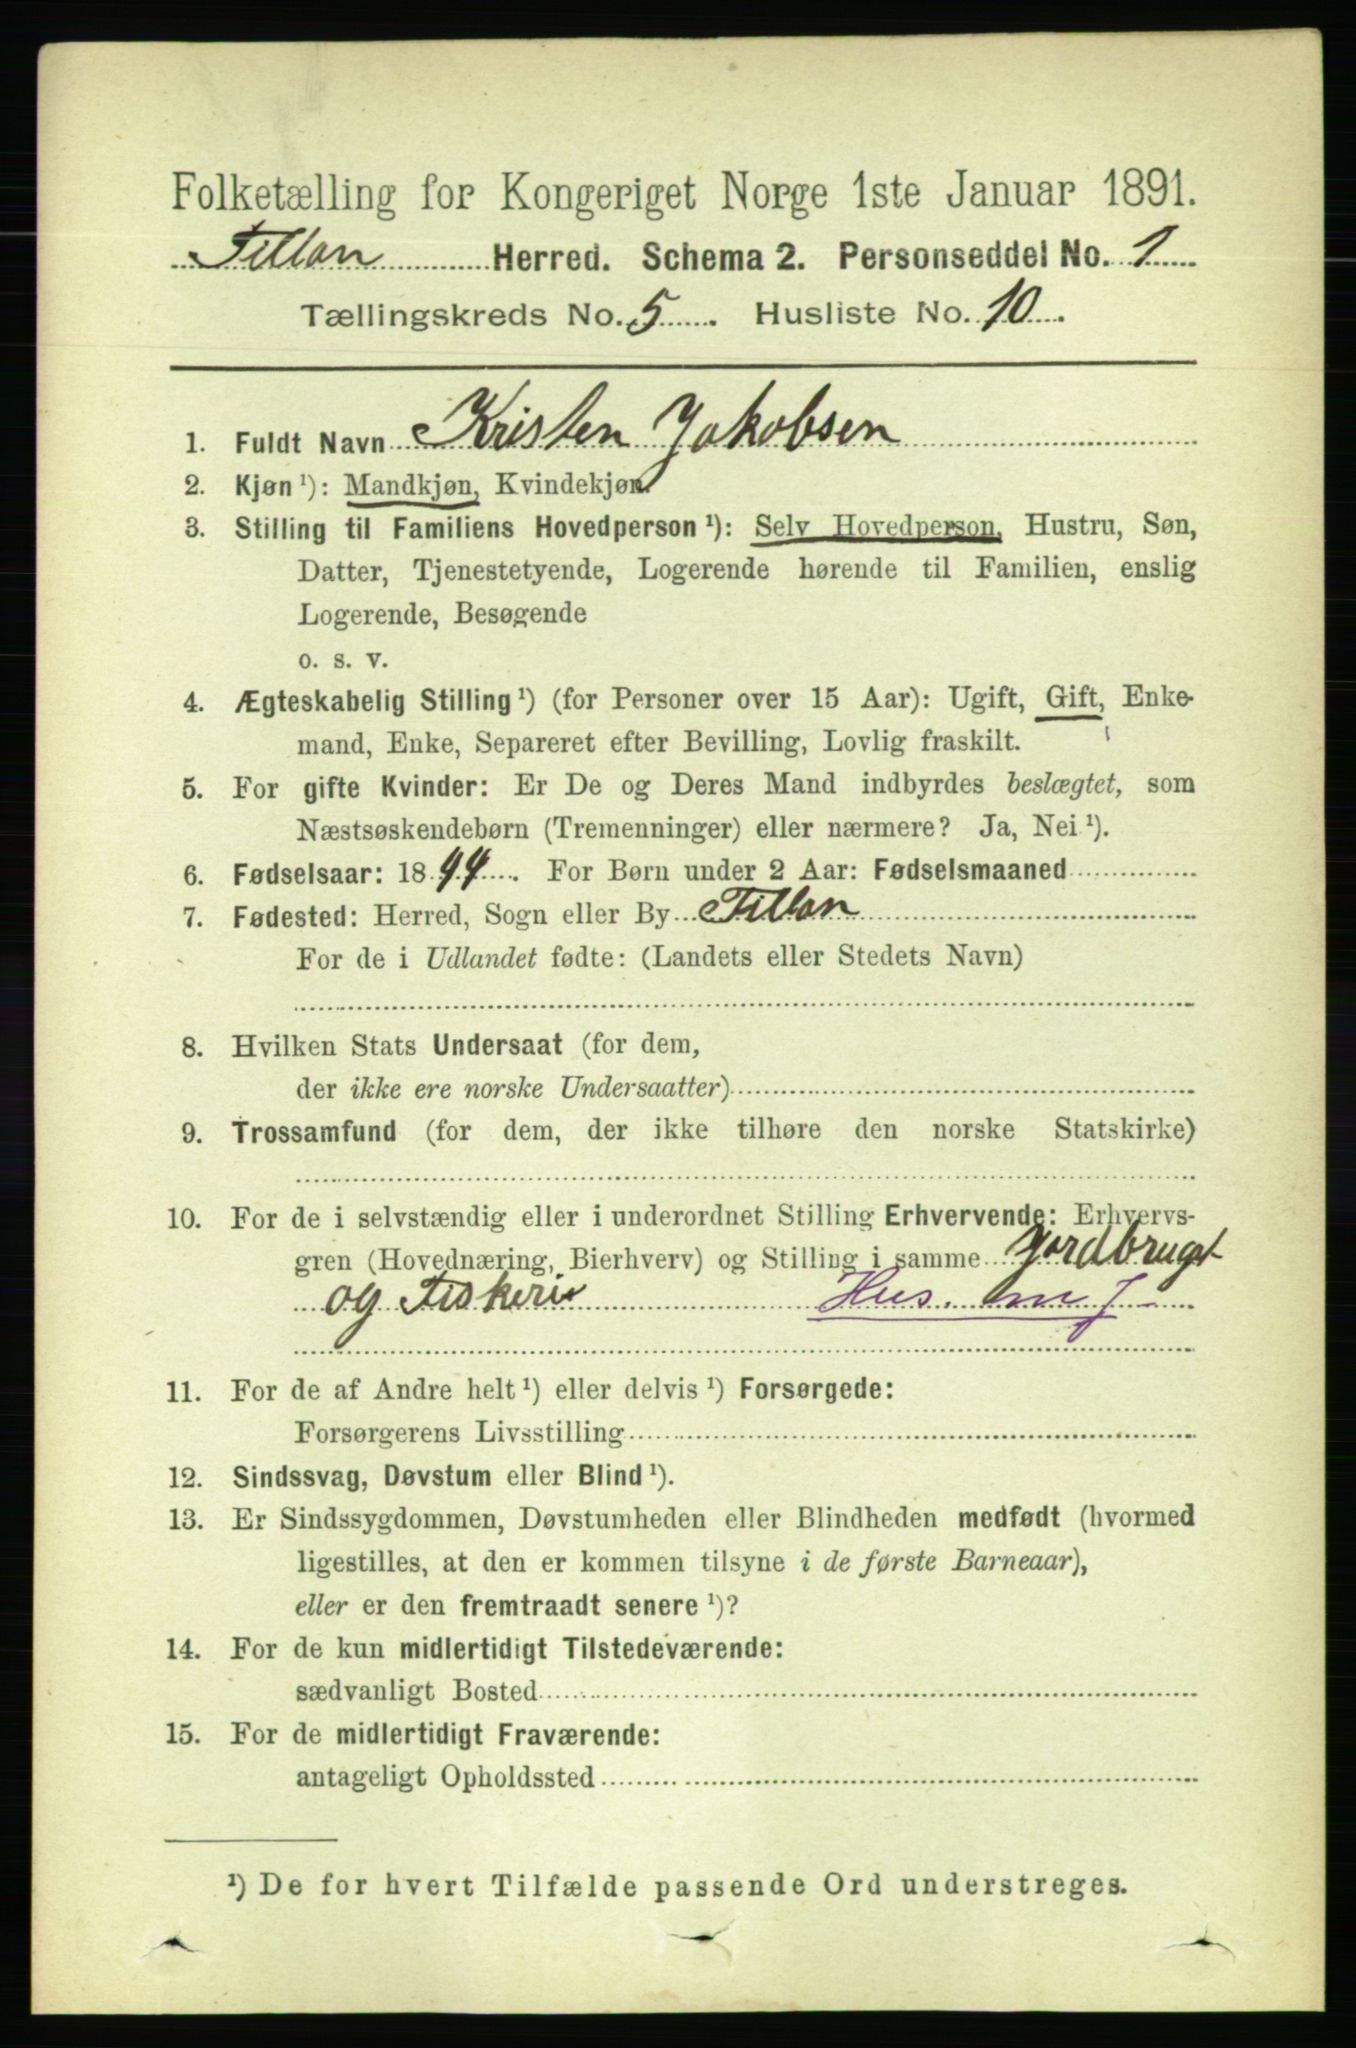 Folketælling for Kongeriget Norge 1ste Januar 1891.
Fillan Herred. Schema 2. Personseddel No. 1
Tællingskreds No. 5. Husliste No. 10.
1. Fuldt Navn Kristen Jakobsen
2. Kjøn ¹): Mandkjøn, Kvindekjøn.
3. Stilling til Familiens Hovedperson ¹): Selv Hovedperson, Hustru, Søn,
Datter, Tjenestetyende, Logerende hørende til Familien, enslig
Logerende, Besøgende
o. s. v.
4. Ægteskabelig Stilling ¹) (for Personer over 15 Aar): Ugift, Gift, Enke-
mand, Enke, Separeret efter Bevilling, Lovlig fraskilt.
5. For gifte Kvinder: Er De og Deres Mand indbyrdes beslægtet, som
Næstsøskendebørn (Tremenninger) eller nærmere? Ja, Nei ¹).
6. Fødselsaar: 1844. For Børn under 2 Aar: Fødselsmaaned
7. Fødested: Herred, Sogn eller By Fillan
For de i Udlandet fødte: (Landets eller Stedets Navn)
8. Hvilken Stats Undersaat (for dem,
der ikke ere norske Undersaatter)
9. Trossamfund (for dem, der ikke tilhøre den norske Statskirke)
10. For de i selvstændig eller i underordnet Stilling Erhvervende: Erhvervs-
gren (Hovednæring, Bierhverv) og Stilling i samme Jordbruget
og Fiskeri Hus. m J
11. For de af Andre helt ¹) eller delvis ¹) Forsørgede:
Forsørgerens Livsstilling
12. Sindssvag, Døvstum eller Blind ¹).
13. Er Sindssygdommen, Døvstumheden eller Blindheden medfødt (hvormed
ligestilles, at den er kommen tilsyne i de første Barneaar),
eller er den fremtraadt senere ¹)?
14. For de kun midlertidigt Tilstedeværende:
sædvanligt Bosted
15. For de midlertidigt Fraværende:
antageligt Opholdssted
¹) De for hvert Tilfælde passende Ord understreges.